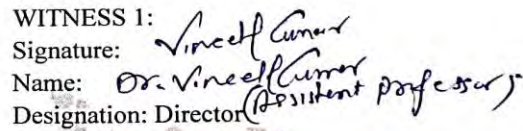 WITNESS 1:
Signature: Vineet Kumar
Name: Dr. Vineet Kumar
Designation: Director (Assistent professor)